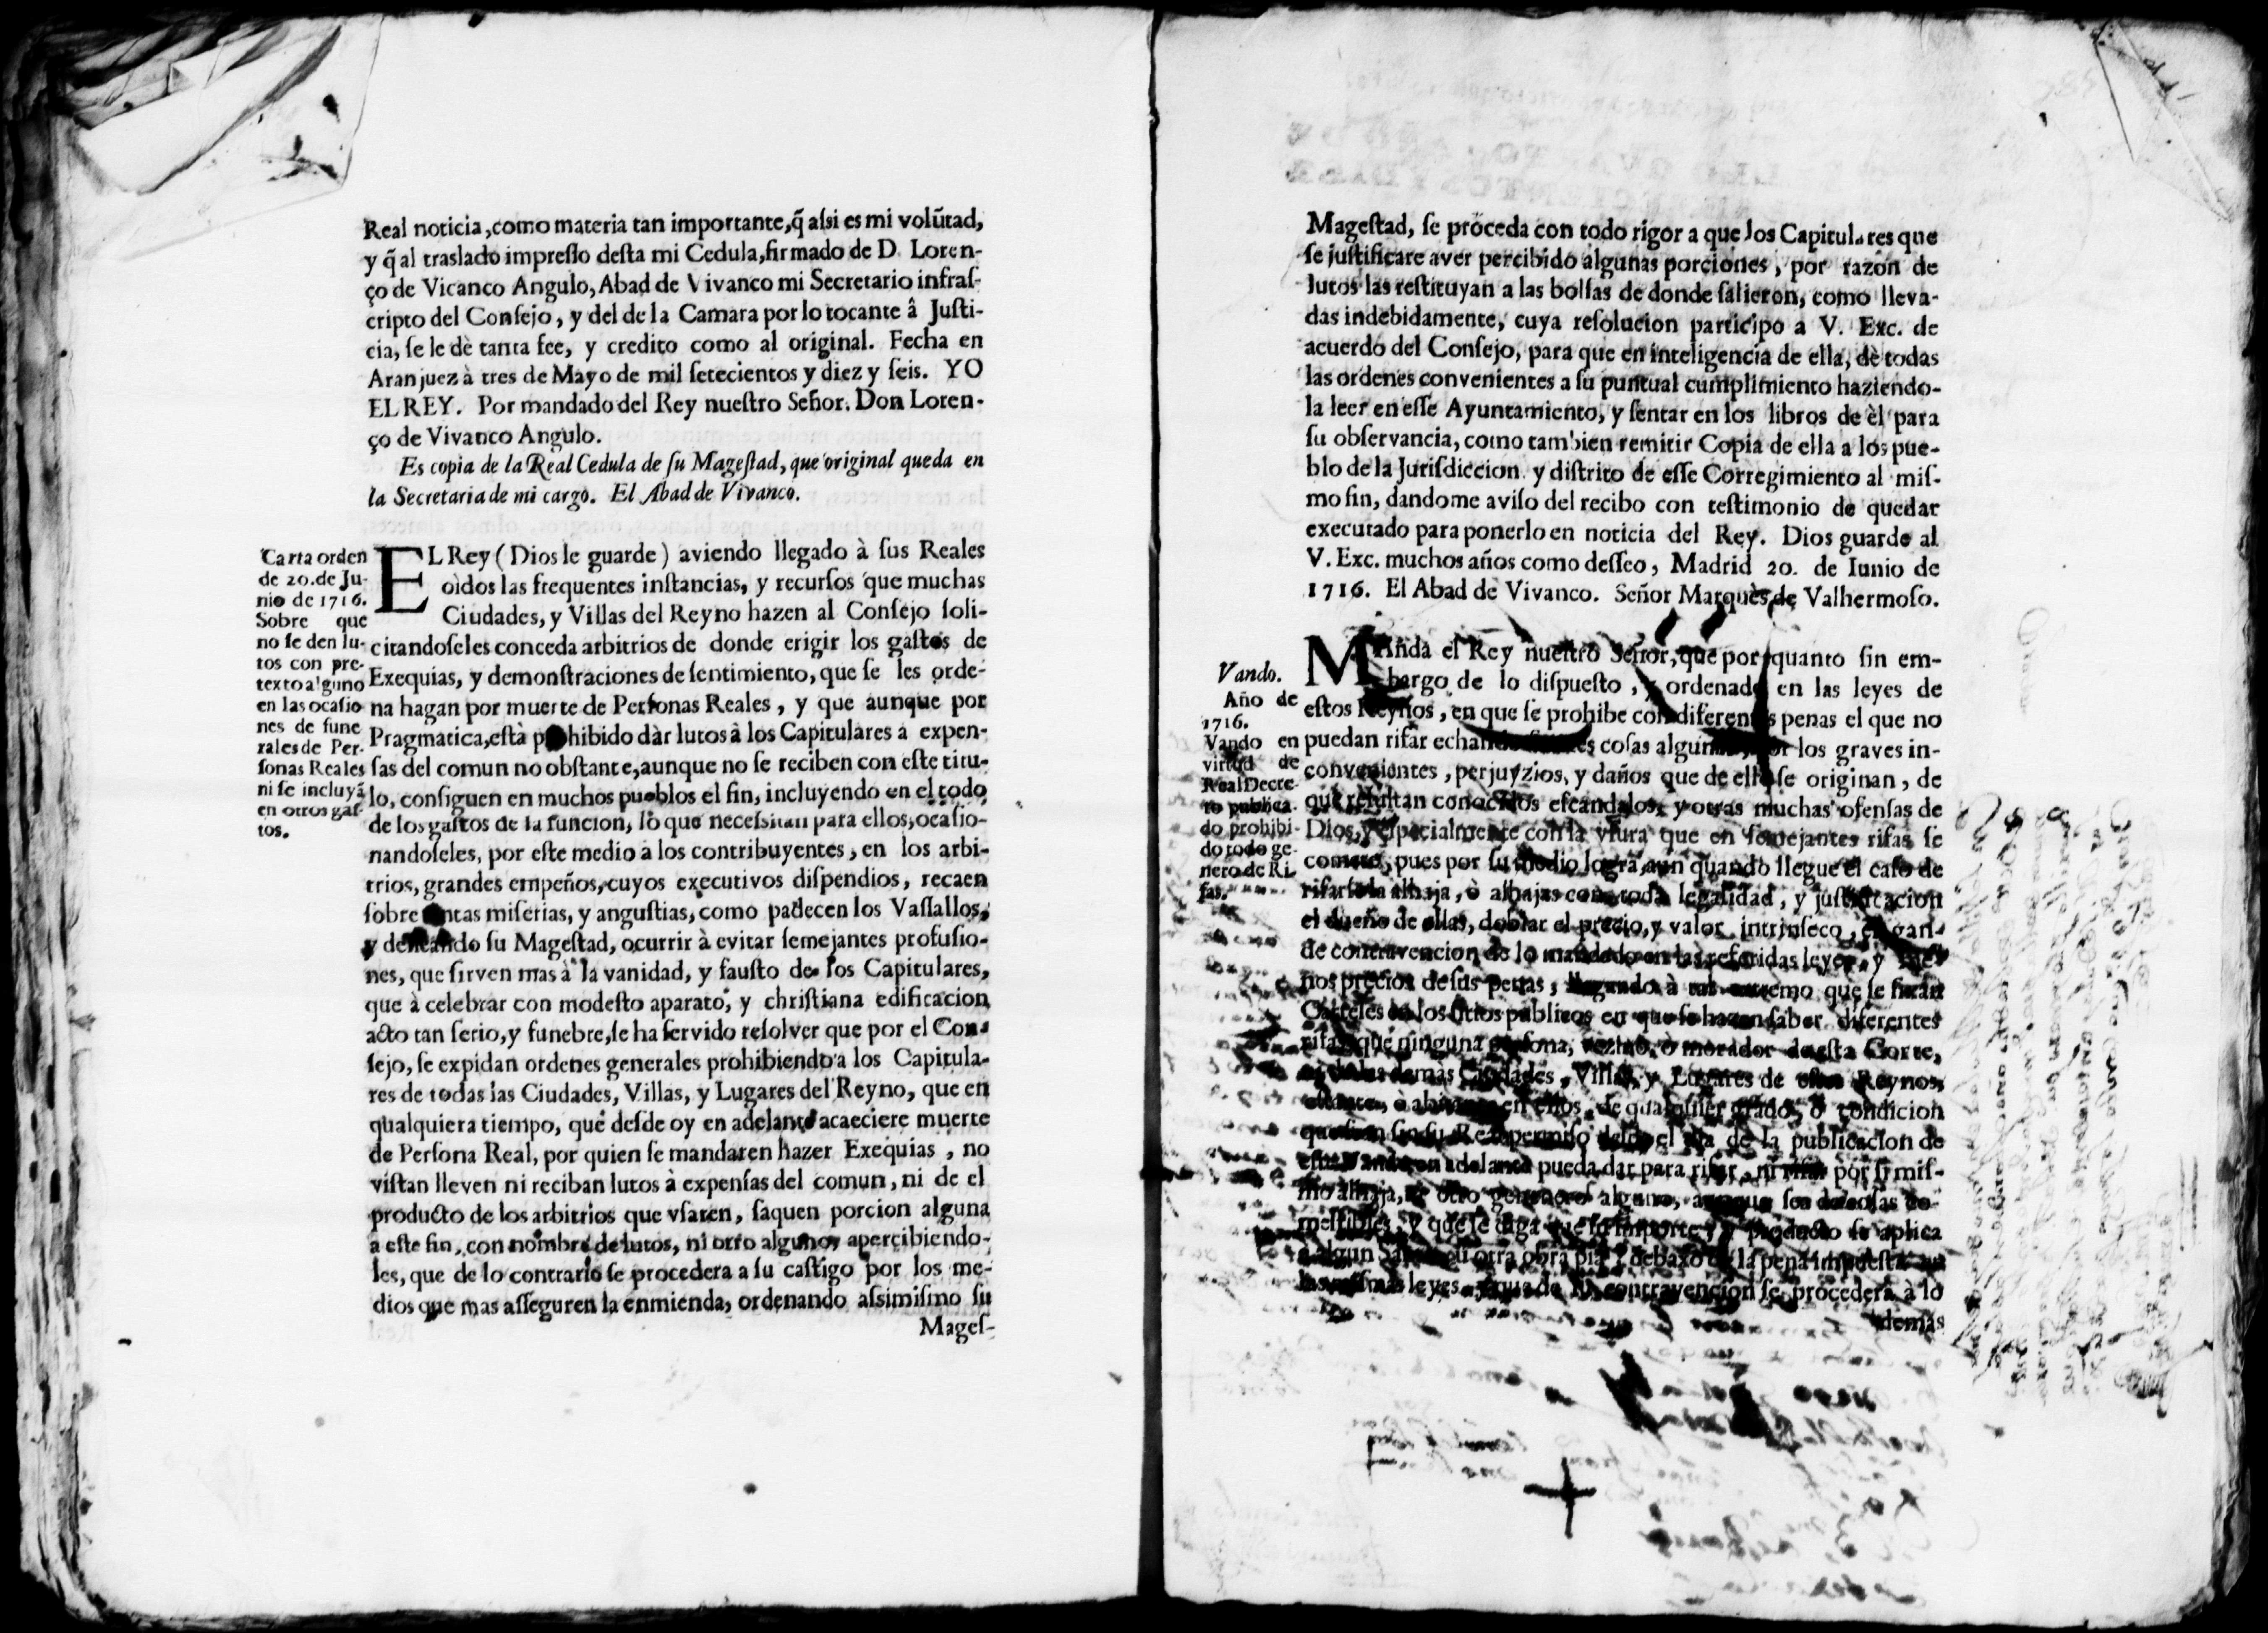 Real noticia, como materia tan importante, q̃ aſsi es mi volũtad,
y q̃ al traslado impreſſo deſta mi Cedula, firmado de D. Loren-
ço de Vicanco Angulo, Abad de Vivanco mi Secretario infraſ-
cripto del Conſejo, y del de la Camara por lo tocante â Juſti-
cia, ſe le dè tanta fee, y credito como al original. Fecha en
Aranjuez à tres de Mayo de mil ſetecientos y diez y ſeis. YO
EL REY. Por mandado del Rey nueſtro Señor. Don Loren-
ço de Vivanco Angulo.
Es copia de la Real Cedula de ſu Mageſtad, que original queda en
la Secretaria de mi cargo. El Abad de Vivanco.
Carta orden
de 20. de Ju-
nio de 1716.
Sobre que
no ſe den lu-
tos con pre-
texto alguno
en las ocaſio
nes de fune
rales de Per-
ſonas Reales
ni ſe incluyã
en otros gaſ-
tos.
EL Rey (Dios le guarde) aviendo llegado à ſus Reales
oìdos las frequentes inſtancias, y recurſos que muchas
Ciudades, y Villas del Reyno hazen al Conſejo ſoli-
citandoſeles conceda arbitrios de donde erigir los gaſtos de
Exequias, y demonſtraciones de ſentimiento, que ſe les orde-
na hagan por muerte de Perſonas Reales, y que aunque por
Pragmatica, eſtà prohibido dàr lutos à los Capitulares a expen-
ſas del comun no obſtante, aunque no ſe reciben con eſte titu-
lo, conſiguen en muchos pueblos el fin, incluyendo en el todo
de los gaſtos de la funcion, lo que neceſsitan para ellos, ocaſio-
nandoſeles, por eſte medio a los contribuyentes, en los arbi-
trios, grandes empeños, cuyos executivos diſpendios, recaen
ſobre tantas miſerias, y anguſtias, como padecen los Vaſſallos,
y deſeando ſu Mageſtad, ocurrir à evitar ſemejantes profuſio-
nes, que ſirven mas à la vanidad, y fauſto de los Capitulares,
que à celebrar con modeſto aparato, y chriſtiana edificacion
acto tan ſerio, y funebre, ſe ha ſervido reſolver que por el Con-
ſejo, ſe expidan ordenes generales prohibiendo a los Capitula-
res de todas las Ciudades, Villas, y Lugares del Reyno, que en
qualquiera tiempo, que deſde oy en adelante acaeciere muerte
de Perſona Real, por quien ſe mandaren hazer Exequias, no
viſtan lleven ni reciban lutos à expenſas del comun, ni de el
producto de los arbitrios que vſaren, ſaquen porcion alguna
a eſte fin, con nombre de lutos, ni otro alguno, apercibiendo-
les, que de lo contrario ſe procedera a ſu caſtigo por los me-
dios que mas aſſeguren la enmienda, ordenando aſsimiſmo ſu
Mageſ-
Mageſtad, ſe proceda con todo rigor a que los Capitulares que
ſe juſtificare aver percibido algunas porciones, por razon de
lutos las reſtituyan a las bolſas de donde ſalieron, como lleva-
das indebidamente, cuya reſolucion participo a V. Exc. de
acuerdo del Conſejo, para que en inteligencia de ella, dè todas
las ordenes convenientes a ſu puntual cumplimiento haziendo-
la leer en eſſe Ayuntamiento, y ſentar en los libros de èl para
ſu obſervancia, como tambien remitir Copia de ella a los pue-
blo de la Juriſdiccion y diſtrito de eſſe Corregimiento al miſ-
mo fin, dandome aviſo del recibo con teſtimonio de quedar
executado para ponerlo en noticia del Rey. Dios guarde al
V. Exc. muchos años como deſſeo, Madrid 20. de Iunio de
1716. El Abad de Vivanco. Señor Marquès de Valhermoſo.
Vando.
Año de
1716.
Vando en
virtud de
Real Decre-
to publica-
do prohibi-
do todo ge-
nero de Ri-
fas.
MAnda el Rey nueſtro Señor, que por quanto ſin em-
bargo de lo diſpueſto, y ordenado en las leyes de
eſtos Reynos, en que ſe prohibe con diferentes penas el que no
puedan rifar echando coſas algunas, por los graves in-
convenientes, perjuyzios, y daños que de ello ſe originan, de
que reſultan conocidos eſcandalos, y otras muchas ofenſas de
Dios, y eſpecialmente con la vſura que en ſemejantes rifas ſe
comete, pues por ſu medio logra, aun quando llegue el caſo de
rifarſe la alhaja, ò alhajas con toda legalidad, y juſtificacion
el dueño de ellas, doblar el precio, y valor intrinſeco, en gran-
de contravencion de lo mandado en las referidas leyes, y
nos precios de ſus penas, llegando à tal extremo que ſe fixan
Carteles en los ſitios publicos en que ſe hazen ſaber diferentes
rifas, que ninguna perſona, vezino, ò morador de eſta Corte,
demàs Ciudades, Villas, y Lugares de eſtos Reynos,
en ellos, de qualquier grado, ò condicion
que ſean ſin ſu Real permiſo deſde el dia de la publicacion de
eſte Vando en adelante pueda dar para rifar, ni rifar por ſi miſ-
mo alhaja, ni otro genero alguno, aunque ſea de coſas co-
meſtibles, y que ſe diga que ſu importe, y producto ſe aplica
a algun Santo, ù otra obra pia, debaxo de la pena impueſta en
las miſmas leyes, y que de la contravencion ſe procederà à lo
demàs